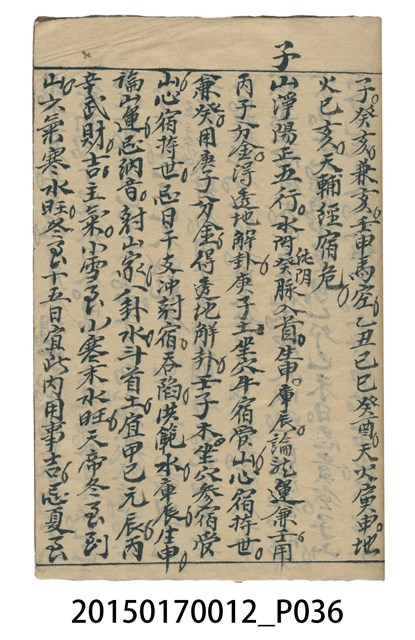 子癸亥兼亥壬申馬宿乙丑己巳癸酉天火庚申地
火巳亥天輔經宿危
子山淨陽正五行水陰癸脉入首生申庫辰論龍運兼壬用
純陰
丙子分金得透地解卦庚子土坐穴牛宿管山心宿持世
兼癸用庚子分金得透地解卦壬子木坐穴參宿管
山心宿持世忌日干支冲尅宿吞陷洪範水庫辰生申
論山運忌納音尅山家八卦水斗首土宜甲己元辰丙
辛武財吉主氣小雪至小寒木水旺天帝冬至到
山六氣寒水旺冬至十五日宜此內用事吉忌夏至
20150170012_P036